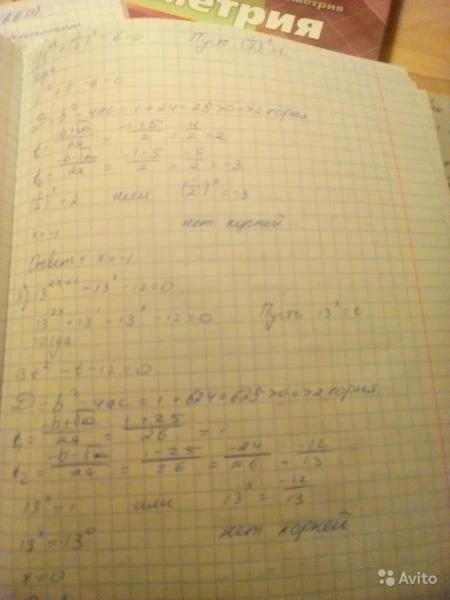 метрия
Пусть (1/2)^x = t
t² + t - 6 = 0
D = b² - 4ac = 1 + 24 = 25 > 0 => 2 корня
t₁ = (-b+√D)/2a = (-1+5)/2 = 4/2 = 2
t₂ = (-b-√D)/2a = (-1-5)/2 = -6/2 = -3
(1/2)^x = 2 или (1/2)^x = -3
x = -1 нет корней
Ответ: x = -1
3) 13^(2x+1) - 13^x - 12 = 0
13^(2x) · 13^1 - 13^x - 12 = 0 Пусть 13^x = t
Тогда
13t² - t - 12 = 0
D = b² - 4ac = 1 + 624 = 625 > 0 => 2 корня
t₁ = (-b+√D)/2a = (1+25)/26 = 1
t₂ = (-b-√D)/2a = (1-25)/26 = -24/26 = -12/13
13^x = 1 или 13^x = -12/13
13^x = 13^0 нет корней
x = 0
Avito